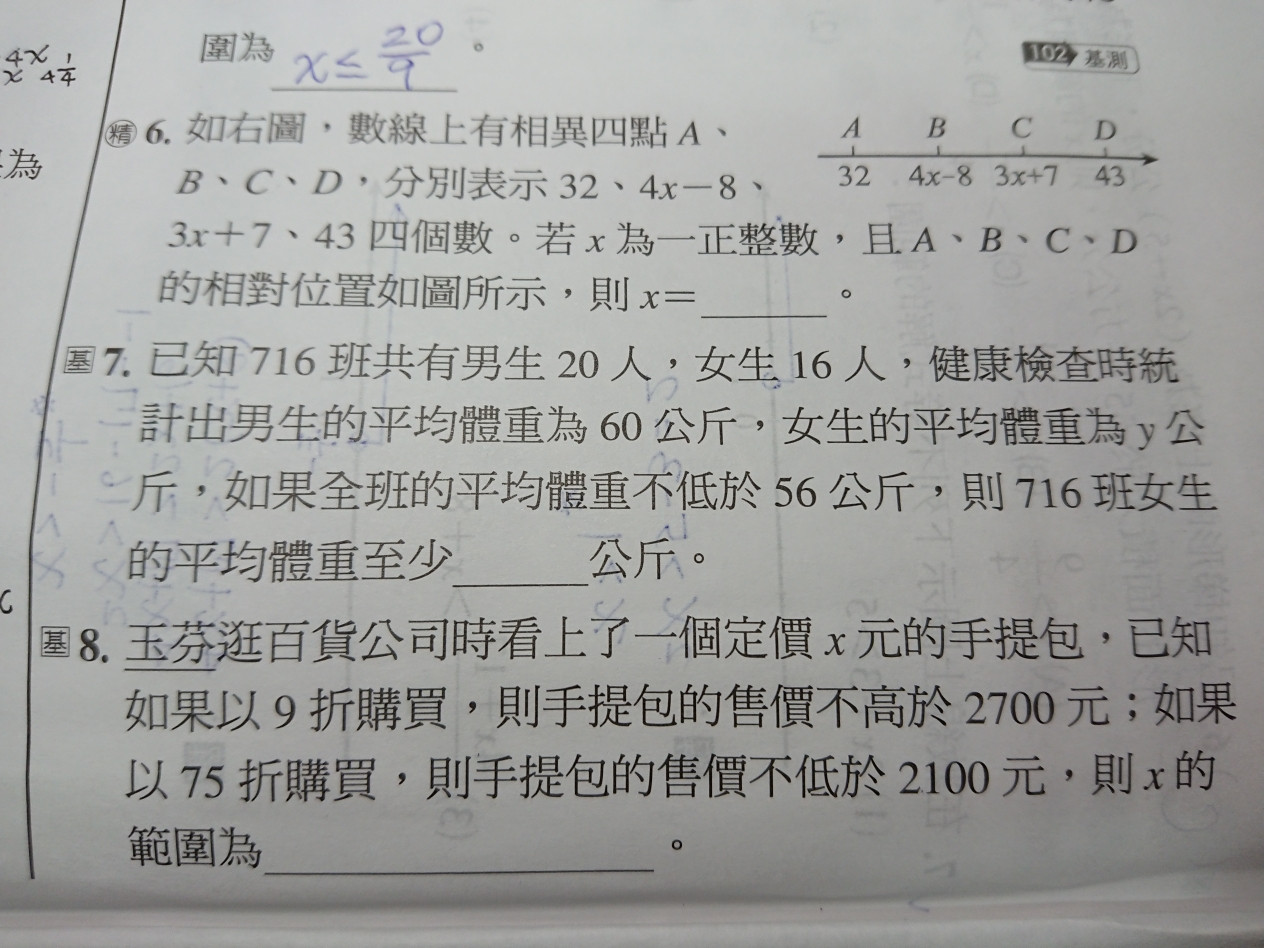 圍為 x≤20/9 。
102 基測
精 6. 如右圖，數線上有相異四點 A、
B、C、D，分別表示 32、4x－8、
3x＋7、43 四個數。若 x 為一正整數，且 A、B、C、D
的相對位置如圖所示，則 x＝______。
A B C D
32 4x-8 3x+7 43
基 7. 已知 716 班共有男生 20 人，女生 16 人，健康檢查時統
計出男生的平均體重為 60 公斤，女生的平均體重為 y 公
斤，如果全班的平均體重不低於 56 公斤，則 716 班女生
的平均體重至少______公斤。
基 8. 玉芬逛百貨公司時看上了一個定價 x 元的手提包，已知
如果以 9 折購買，則手提包的售價不高於 2700 元；如果
以 75 折購買，則手提包的售價不低於 2100 元，則 x 的
範圍為______。
為